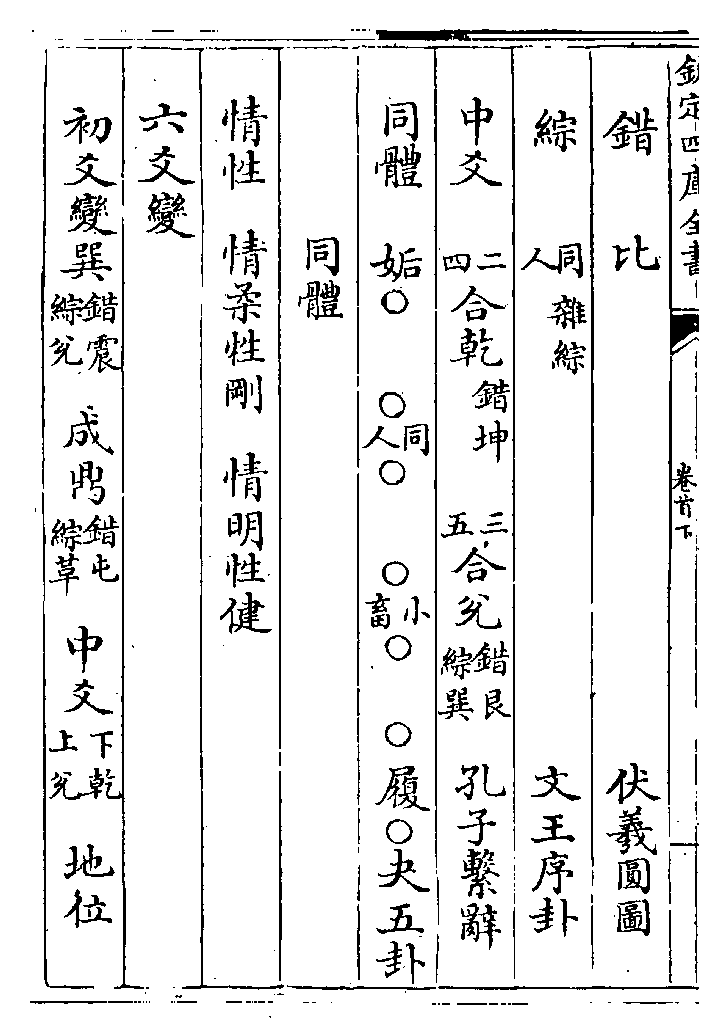 欽定四庫全書
卷首下
錯　比　伏羲圓圖
綜　同人雜綜　文王序卦
中爻　二四合乾錯坤　三五合兌錯艮綜巽　孔子繫辭
同體　姤○　○同人○　○小畜○　○履○夬五卦
同體
情性　情柔性剛　情明性健
六爻變
初爻變巽錯震綜兌　成鼎錯屯綜革　中爻下乾上兌　地位